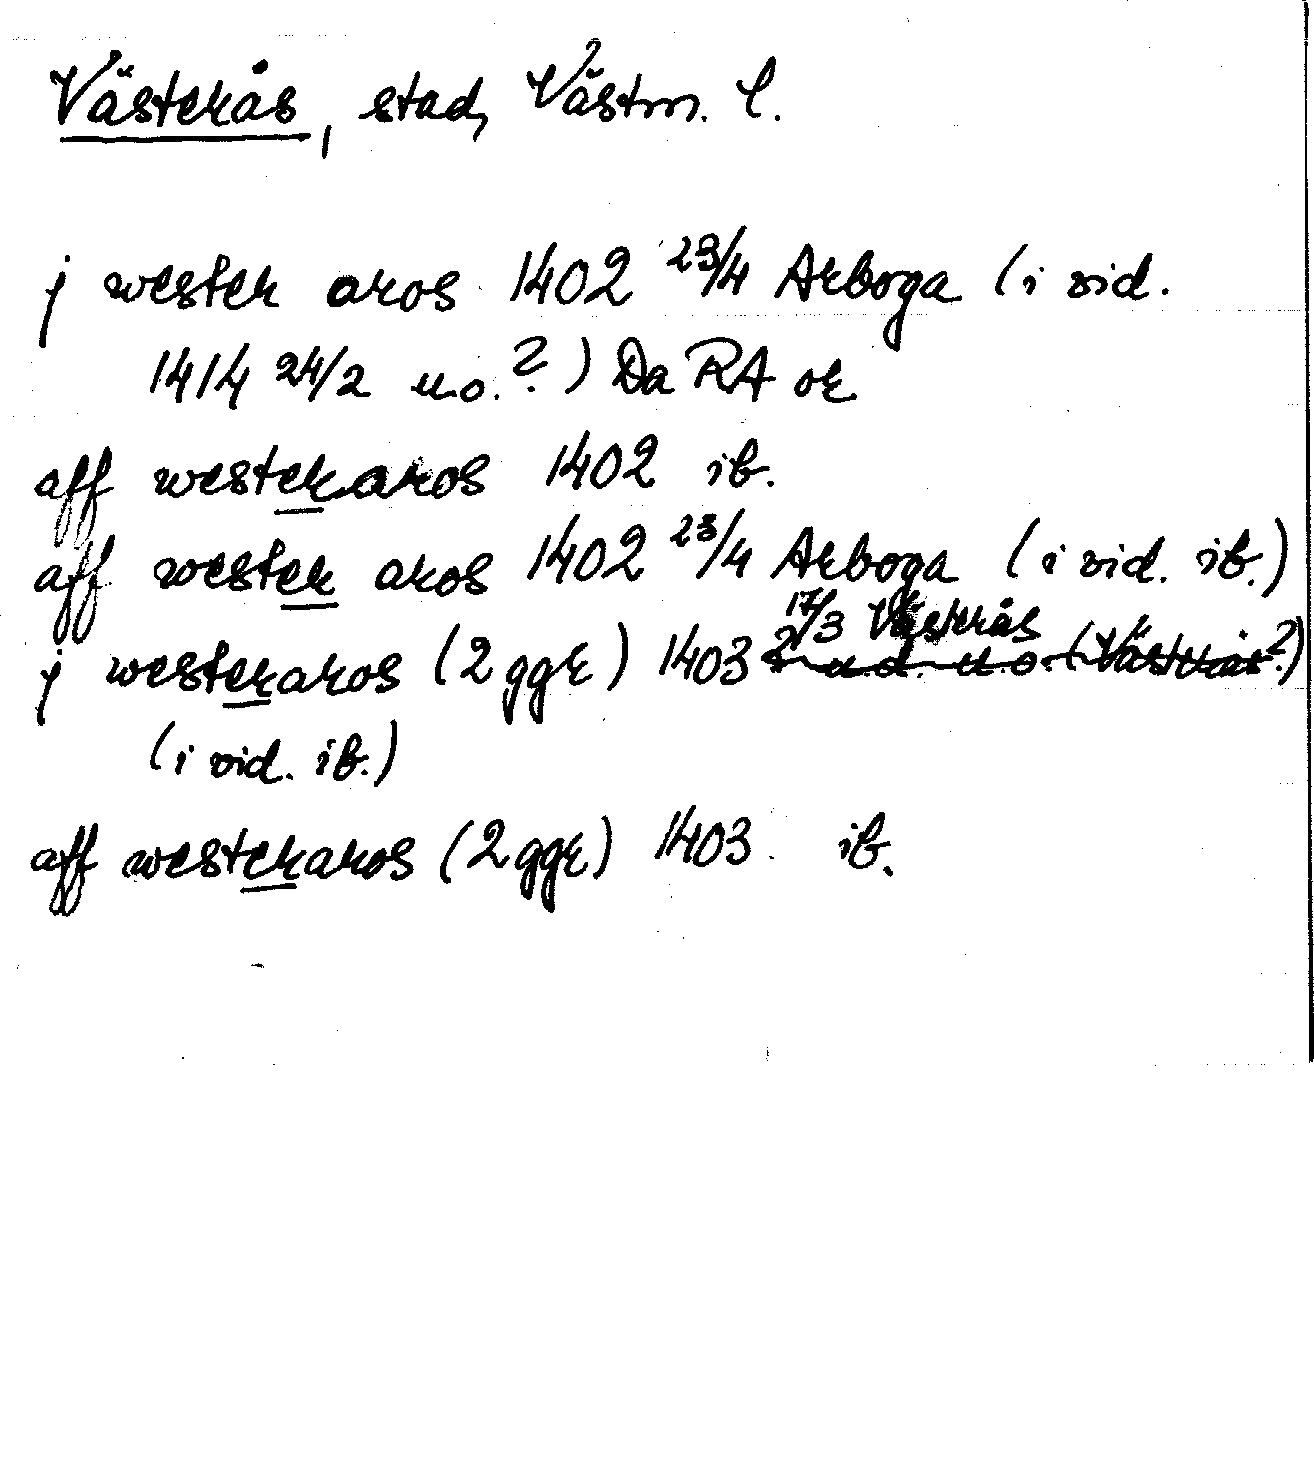 Västerås, stad, Västm. l.
j wester aros 1402 23/4 Arboga (i vid.
1414 24/2 u.o.?) Da RA or.
aff westeraros 1402 ib.
aff wester aros 1402 23/4 Arboga (i vid. ib.)
17/3 Västerås
j westeraros (2 ggr) 1403 u.d. u.o. (Västerås?)
(i vid. ib.)
aff westeraros (2 ggr) 1403 ib.